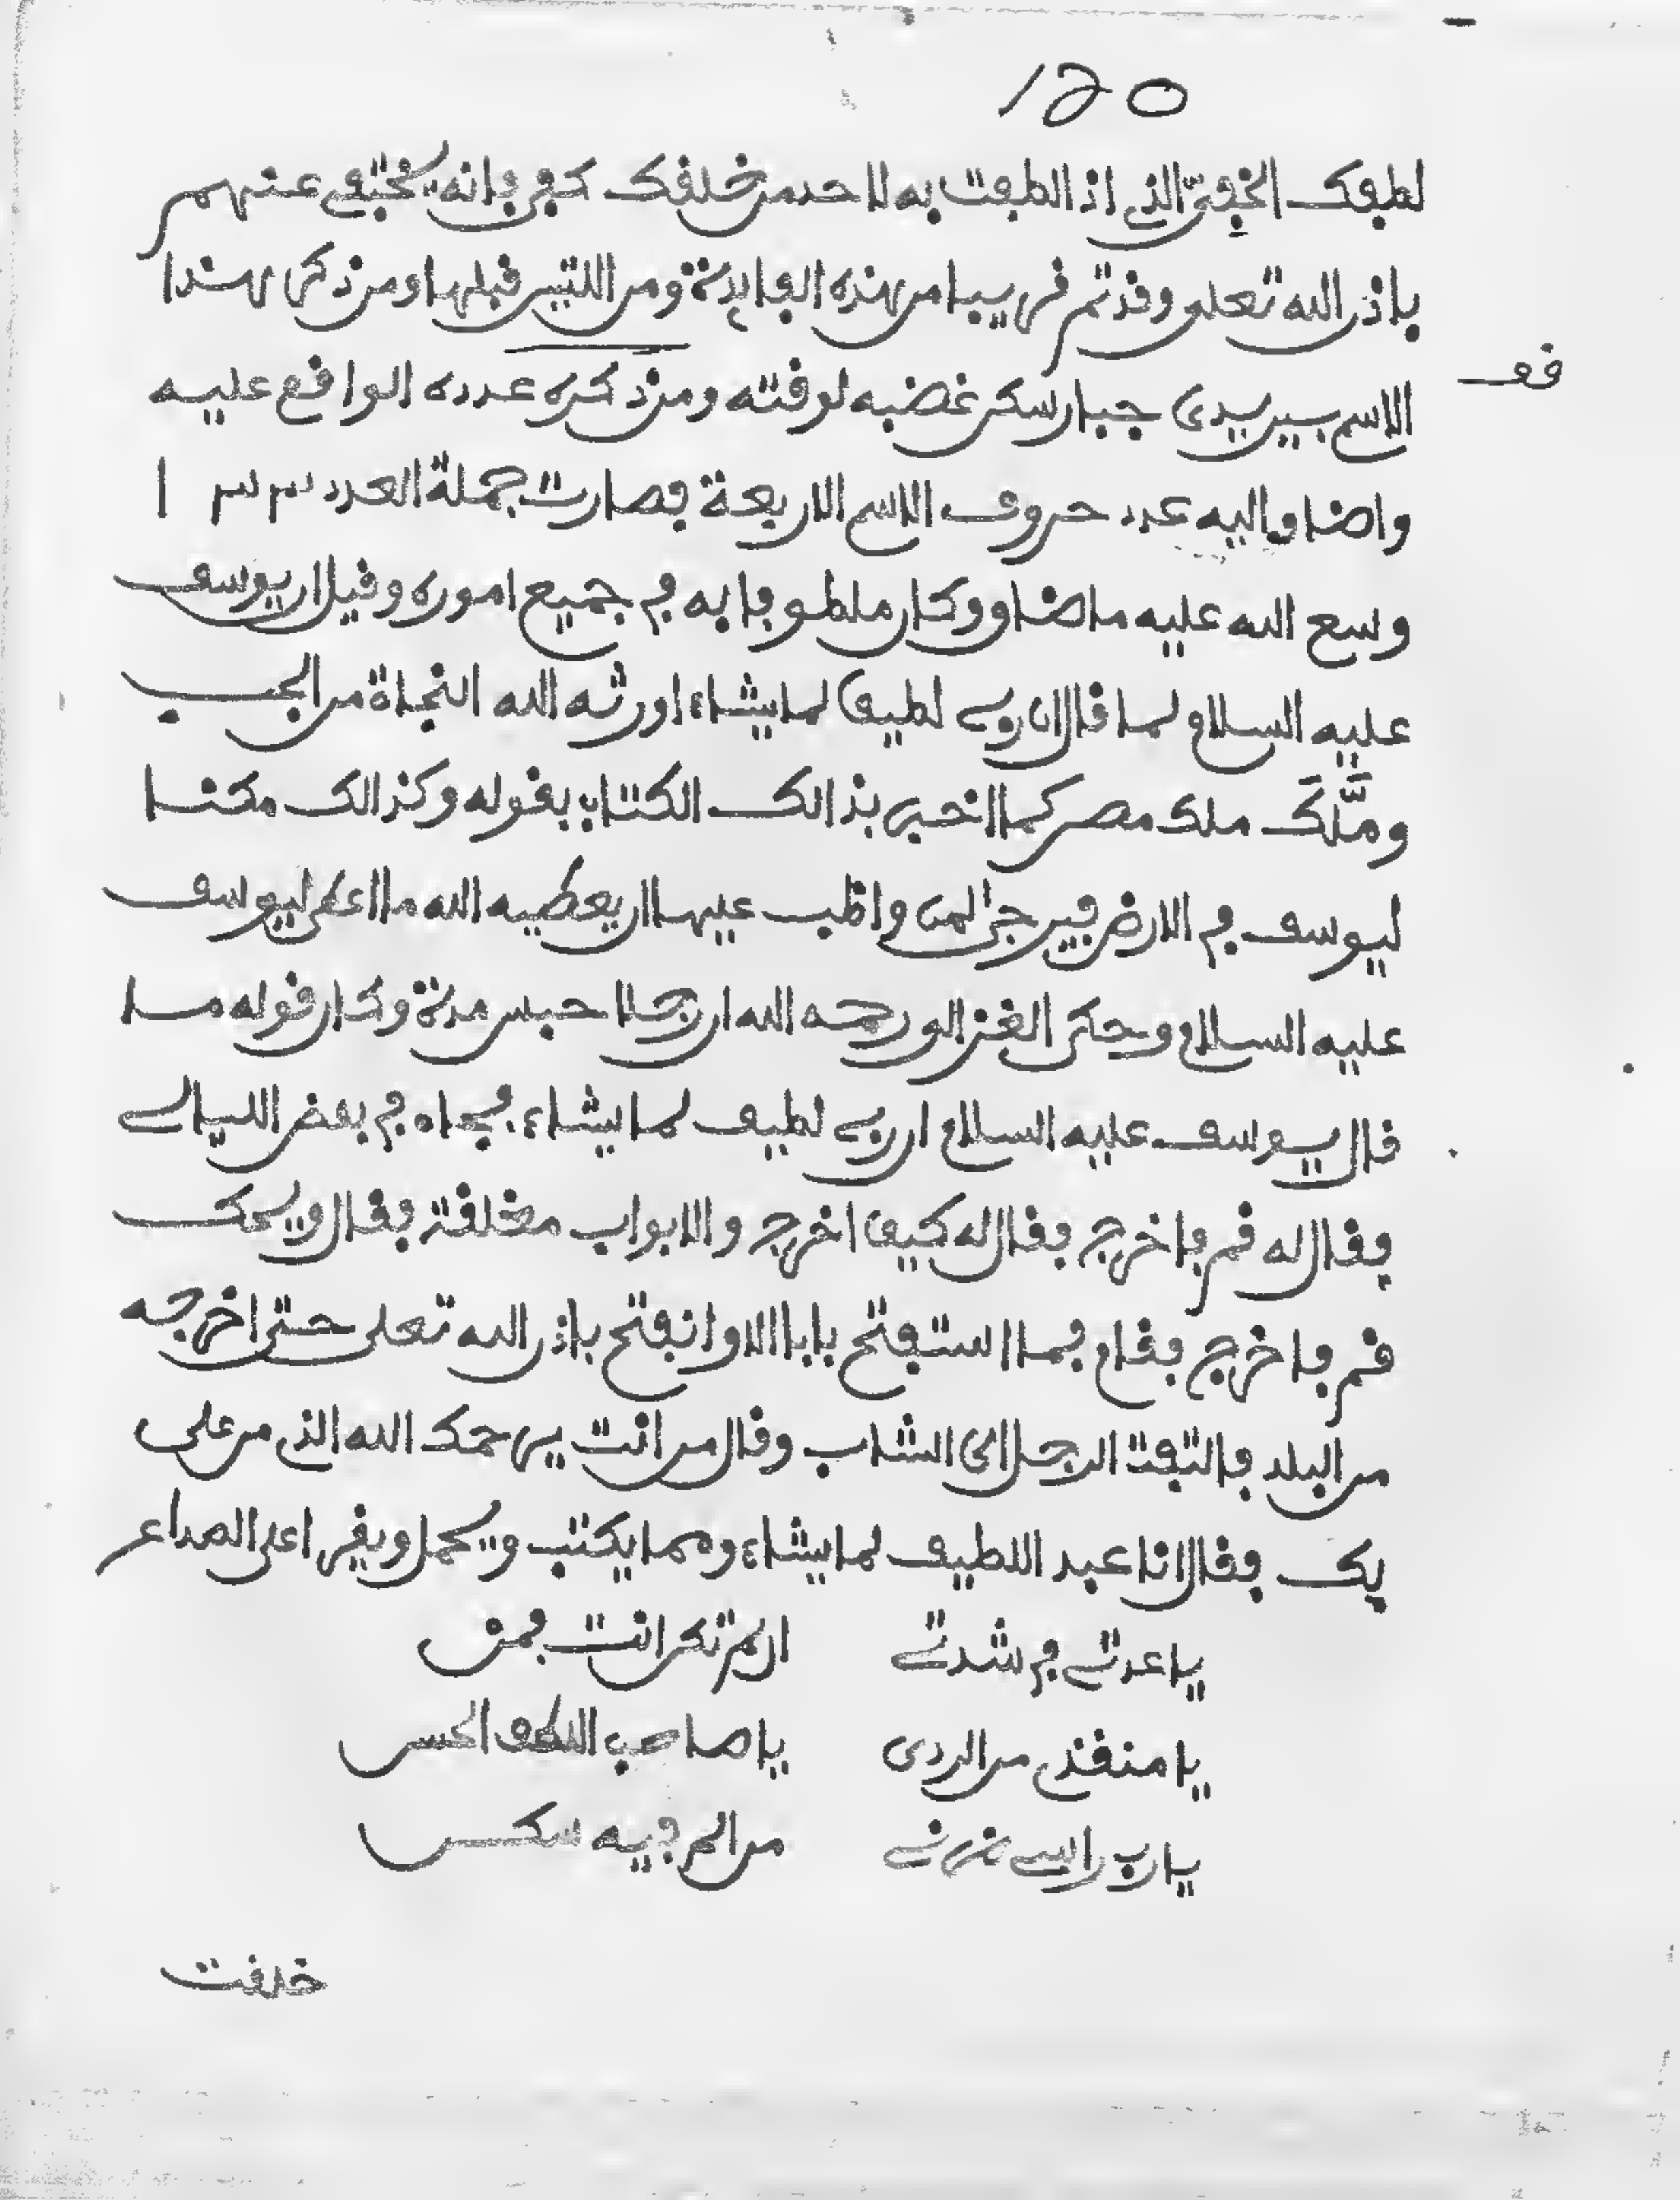 120
لطفك الخفيّ الذي اذا لطفت به لاحد من خلفك كفي فانه يختفي عنهم
باذن الله تعلى وقد تم قريبا من هذه الفايدة ومن اللتين قبلها ومن ذكر هذا
قف
الاسم بين يدى جبار سكن غضبه لوقته ومن ذكره عدده الواقع عليه
واضاف اليه عدد حروف الاسم الاربعة فصارت جملة العدد ١٣٣
وسع الله عليه ما ضاق وكان ملطوفا به في جميع اموره وقيل ان يوسف
عليه السلام لما قال ان ربي لطيف لما يشاء اورثه الله النجاة من الجب
ومَّلَكَ ملك مصر كما اخبر بذالك الكتاب بقوله وكذالك مكنا
ليوسف في الارض فيرجى لمن واظب عليها ان يعطيه الله ما اعطى ليوسف
عليه السلام وحكى الغزالي رحمه الله ان رجلا حبس مدة وكان قوله ما
قال يوسف عليه السلام ان ربي لطيف لما يشاء فجاه في بعض الليالي
فقال له قم فاخرج فقال له كيف اخرج والابواب مغلقة فقال ويحك
قم فاخرج فقام فما استفتح بابا الا وانفتح باذن الله تعلى حتى اخرجه
من البلد فالتفت الرجل الى الشاب وقال من انت يرحمك الله الذي من على
بك فقال انا عبد اللطيف لما يشاء ومما يكتب ويحمل ويقرا على الصداع
يا عدتي في شدتي ان لم تكن انت فمن
يا منقذي من الردى يا صاحب اللطف الحسن
يا رب راسي ضرني من الم فيه سكن
خلقت